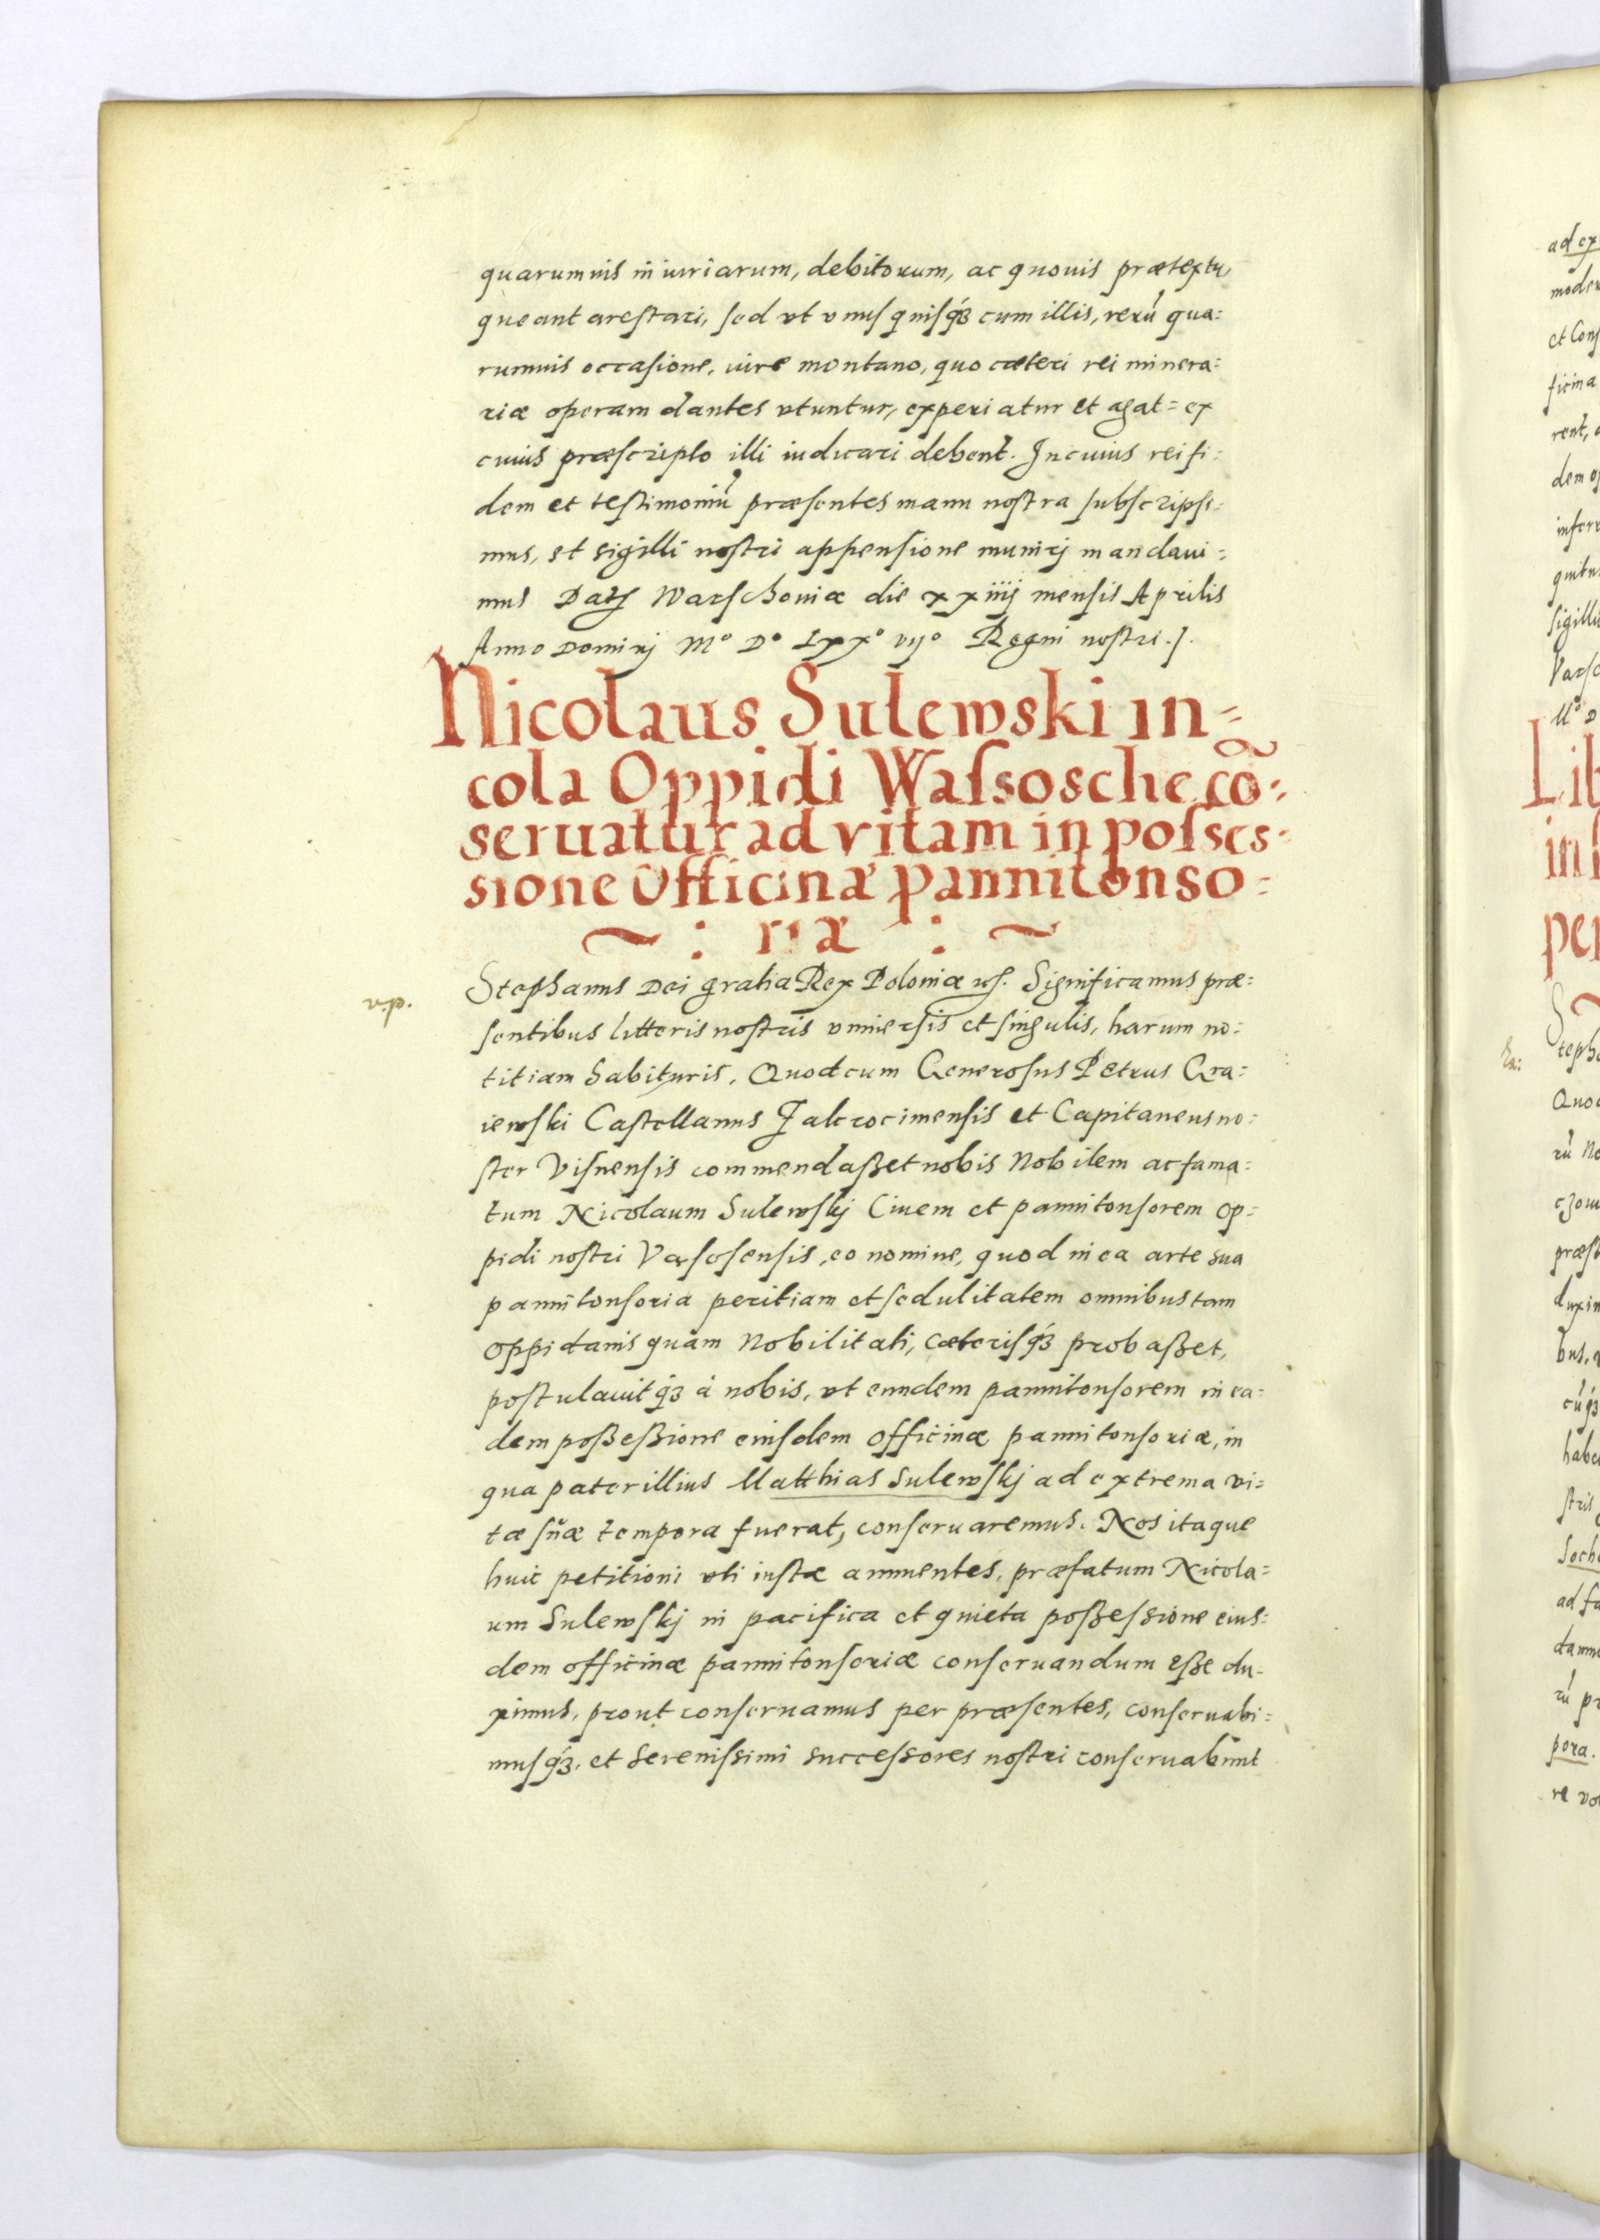 quarumuis iniuriarum, debitorum, ac quouis prætextu,
queant arestari, sed vt vnusquisq́ꝫ cum illis, rerũ qua:
rumuis occasione, iure montano, quo cæteri rei minera:
riæ operam dantes vtuntur, experiatur et agat: ex
cuius præscripto illi iudicari debent. In cuius rei fi:
dem et testimoniũ præsentes manu nostra subscripsi:
mus, et sigilli nostri appensione munirj mandaui:
mus Datꝭ Warschouiæ die xxiiij mensis Aprilis
Anno Dominj Mº Dº Lxxº vijº Regni nostri .j.
Nicolaus Sulewski in=
cola Oppidi Wassosche cõ:
seruatur ad vitam in posses:
sione Officinæ pannitonso:
~ : riæ : ~
v.p.
Stephanus Dei gratia Rex Poloniæ ꝛcꝭ. Significamus præ:
sentibus litteris nostris vniuersis et singulis, harum no:
titiam habituris. Quod cum Generosus Petrus Gra:
iewski Castellanus Zakrocimensis et Capitaneus no:
ster Visnensis commendaßet nobis Nobilem ac fama:
tum Nicolaum Sulewskj Ciuem et pannitonsorem op:
pidi nostri Vąsosensis, eo nomine, quod in ea arte sua
pannitonsoria peritiam et sedulitatem omnibus tam
oppidanis quam Nobilitati, cæterisq́ꝫ probaßet,
postulauitq́ꝫ à nobis, vt eundem pannitonsorem in ea:
dem poßeßione eiusdem officinæ pannitonsoriæ, in
qua pater illius Matthias Sulewskj ad extrema vi:
tæ suæ tempora fuerat, conseruaremus. Nos itaque
huic petitioni vti iustæ annuentes, præfatum Nicola:
um Sulewskj in pacifica et quieta poßessione eius:
dem officinæ pannitonsoriæ conseruandum eße du:
ximus, prout conseruamus per præsentes, conseruabi:
musq́ꝫ, et Serenissimi successores nostri conseruabunt